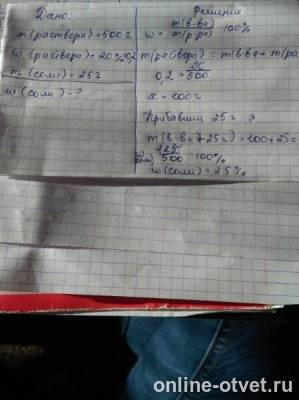 Дано:
m(раствора)=500г
w(раствора)=20%=0,2
m(соли)=25г
w(соли)-?
Решение
w = m(в-ва) / m(р-ра) 100%
m(раствора) = m(в-ва + m(ра
0,2 = x / 500
x = 100г
Прибавим 25г
m(в-ва+25г)=100+25=
125 / 500 100%
w(соли)=25%
online-otvet.ru